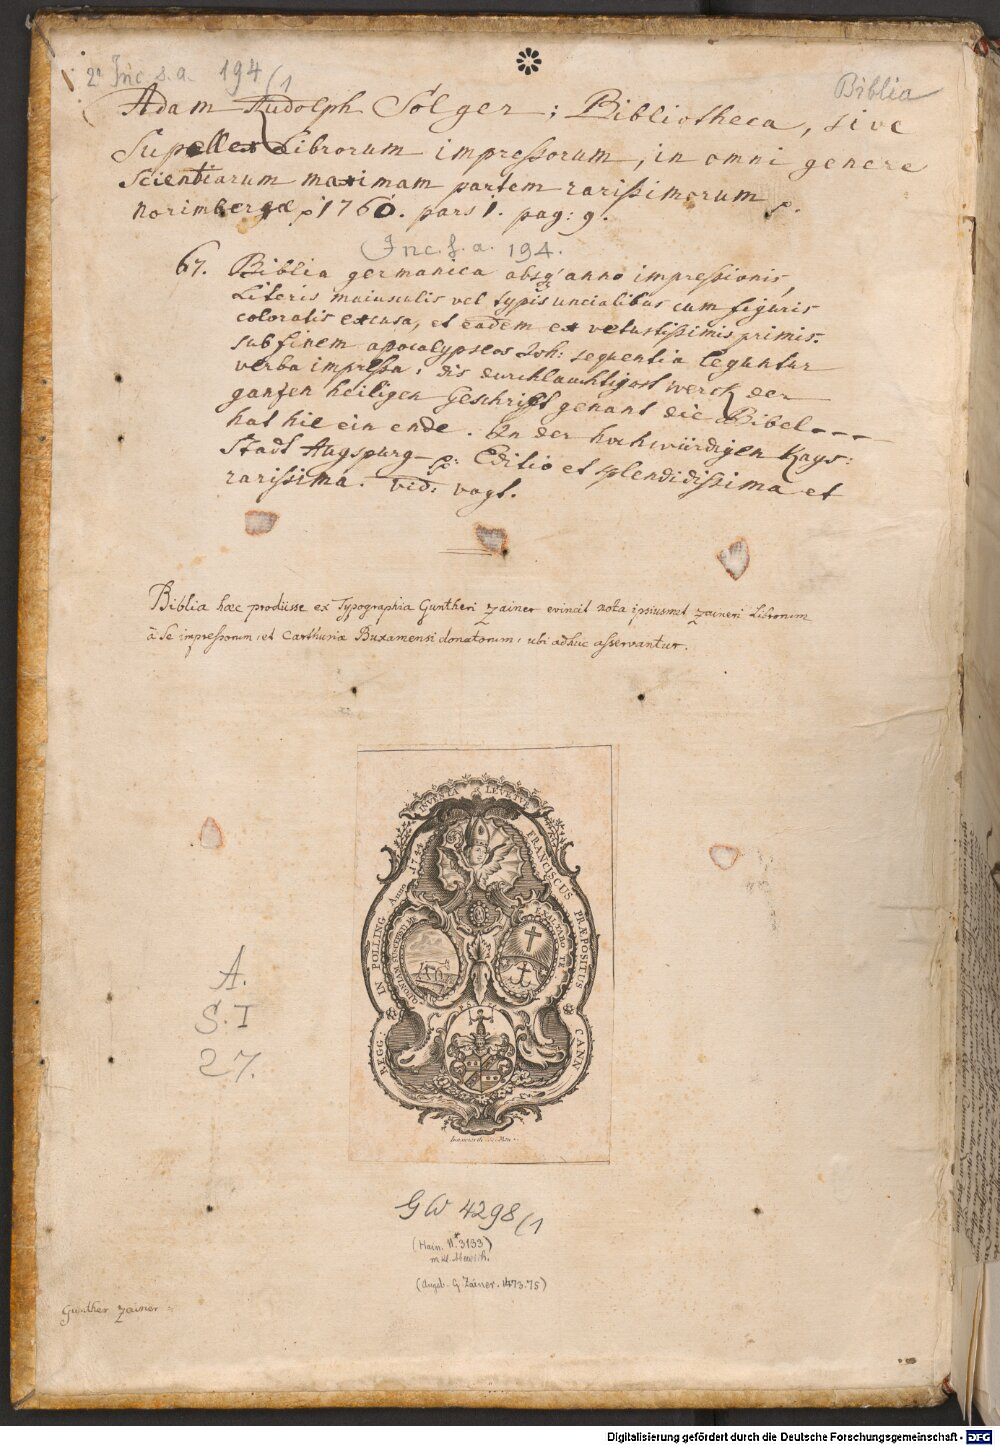 2° Inc. s. a. 194/1
Biblia
Adam Rudolph Solger; Bibliotheca, sive
Supellex Librorum impressorum, in omni genere
Scientiarum maximam partem rarissimorum
Norimbergæ 1760. pars 1. pag: 9.
Inc. s. a. 194.
67. Biblia germanica absq anno impressionis,
Literis maiusculis vel typis uncialibus cum figuris
coloratis excusa, et eadem ex vetustissimis primis.
sub finem apocalypseos Joh: sequentia leguntur
verba impressa: dis durchlauchtigost werck der
gantzen heiligen Geschrifft genant die Bibel---
hat hie ein ende. In der hochwürdigen Kays:
Stadt Augspurg Editio et splendidissima et
rarissima. vid: vogt.
Biblia hæc prodiisse ex Typographia Guntheri Zainer evincit nota ipsiusmet Zaineri Librorum
â se impressorum, et Carthusiæ Buxamensi donatorum, ubi adhuc asservantur.
INVENTA LEVETUR
FRANCISCUS PRÆPOSITUS CANN
REGG: IN POLLING Anno 1744
A.
S. I
27.
GW 4298/1
(Hain. 3133)
(Augsb. G. Zainer. 1473.75)
Gunther Zainer
Digitalisierung gefördert durch die Deutsche Forschungsgemeinschaft - DFG